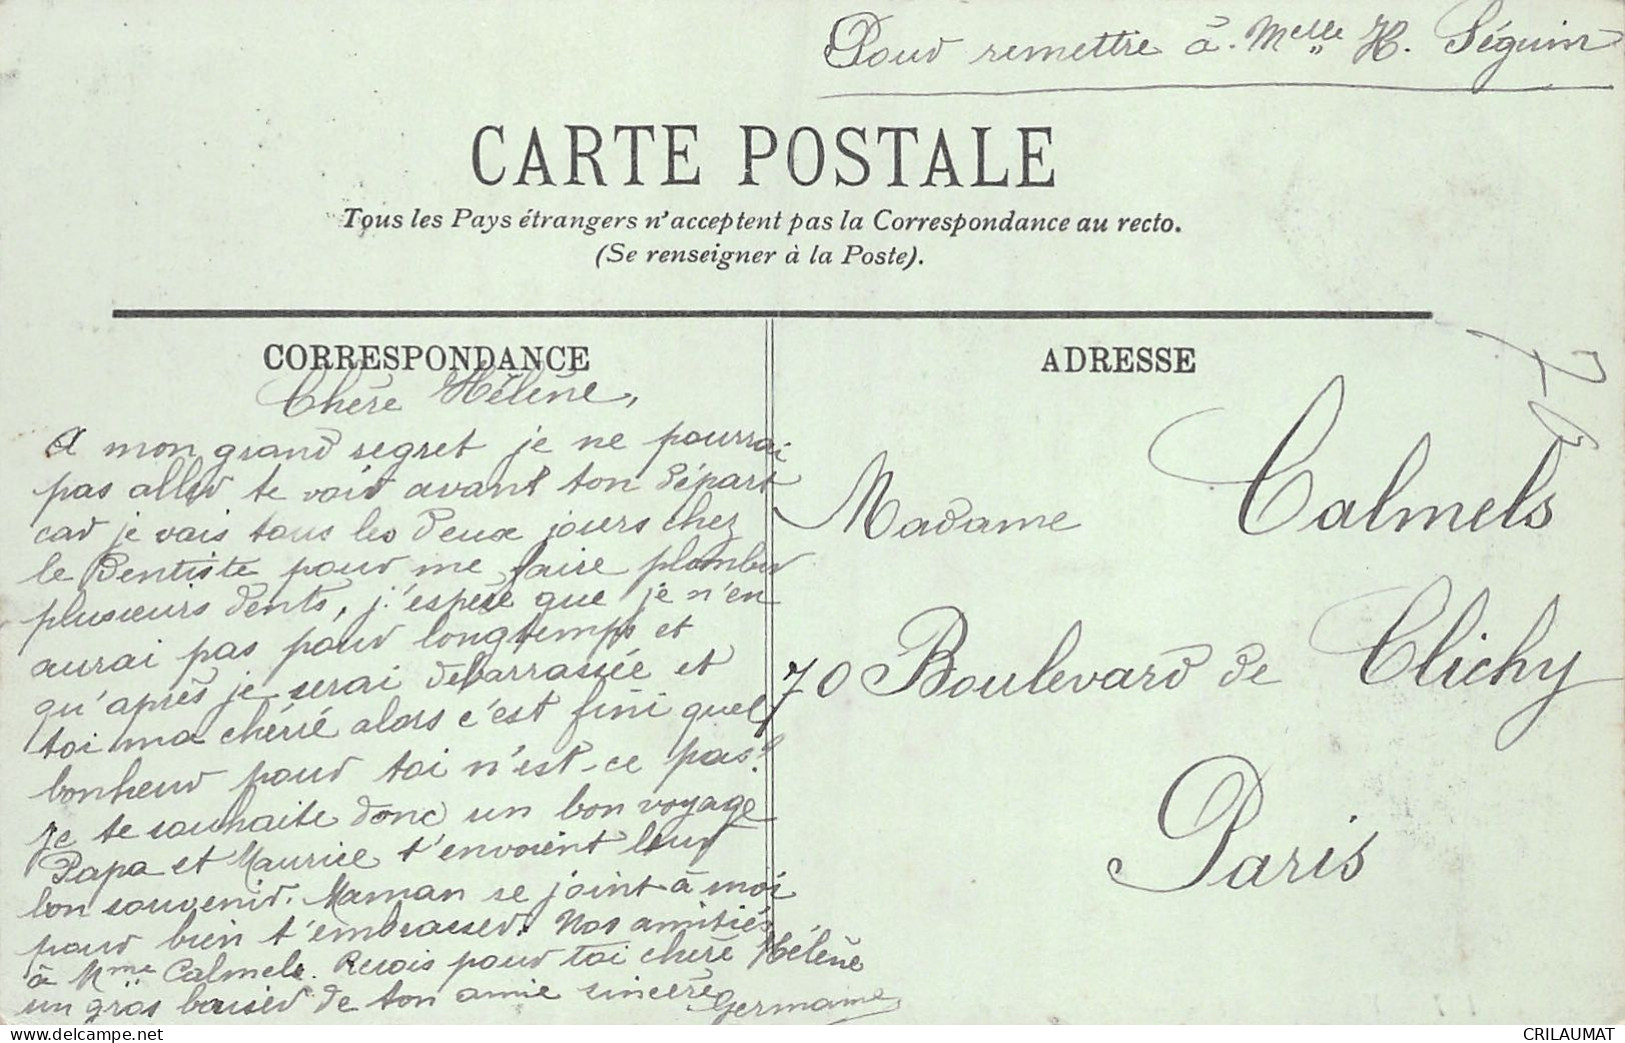 Pour remettre à Melle H. Séguin
CARTE POSTALE
Tous les Pays étrangers n'acceptent pas la Correspondance au recto.
(Se renseigner à la Poste).
CORRESPONDANCE
Chère Hélène,
A mon grand regret je ne pourrai
pas aller te voir avant ton départ
car je vais tous les deux jours chez
le Dentiste pour me faire plomber
plusieurs dents, j'espère que je n'en
aurai pas pour longtemps et
qu'après je serai débarrassée et
toi ma chérie alors c'est fini quel
bonheur pour toi n'est-ce pas?
Je te souhaite donc un bon voyage
Papa et Maurice t'envoient leur
bon souvenir. Maman se joint à moi
pour bien t'embrasser. Nos amitiés
à Mme Calmels. Reçois pour toi chère Hélène
un gros baiser de ton amie sincère
Germaine
ADRESSE
Madame Calmels
70 Boulevard de Clichy
Paris
CRILAUMAT